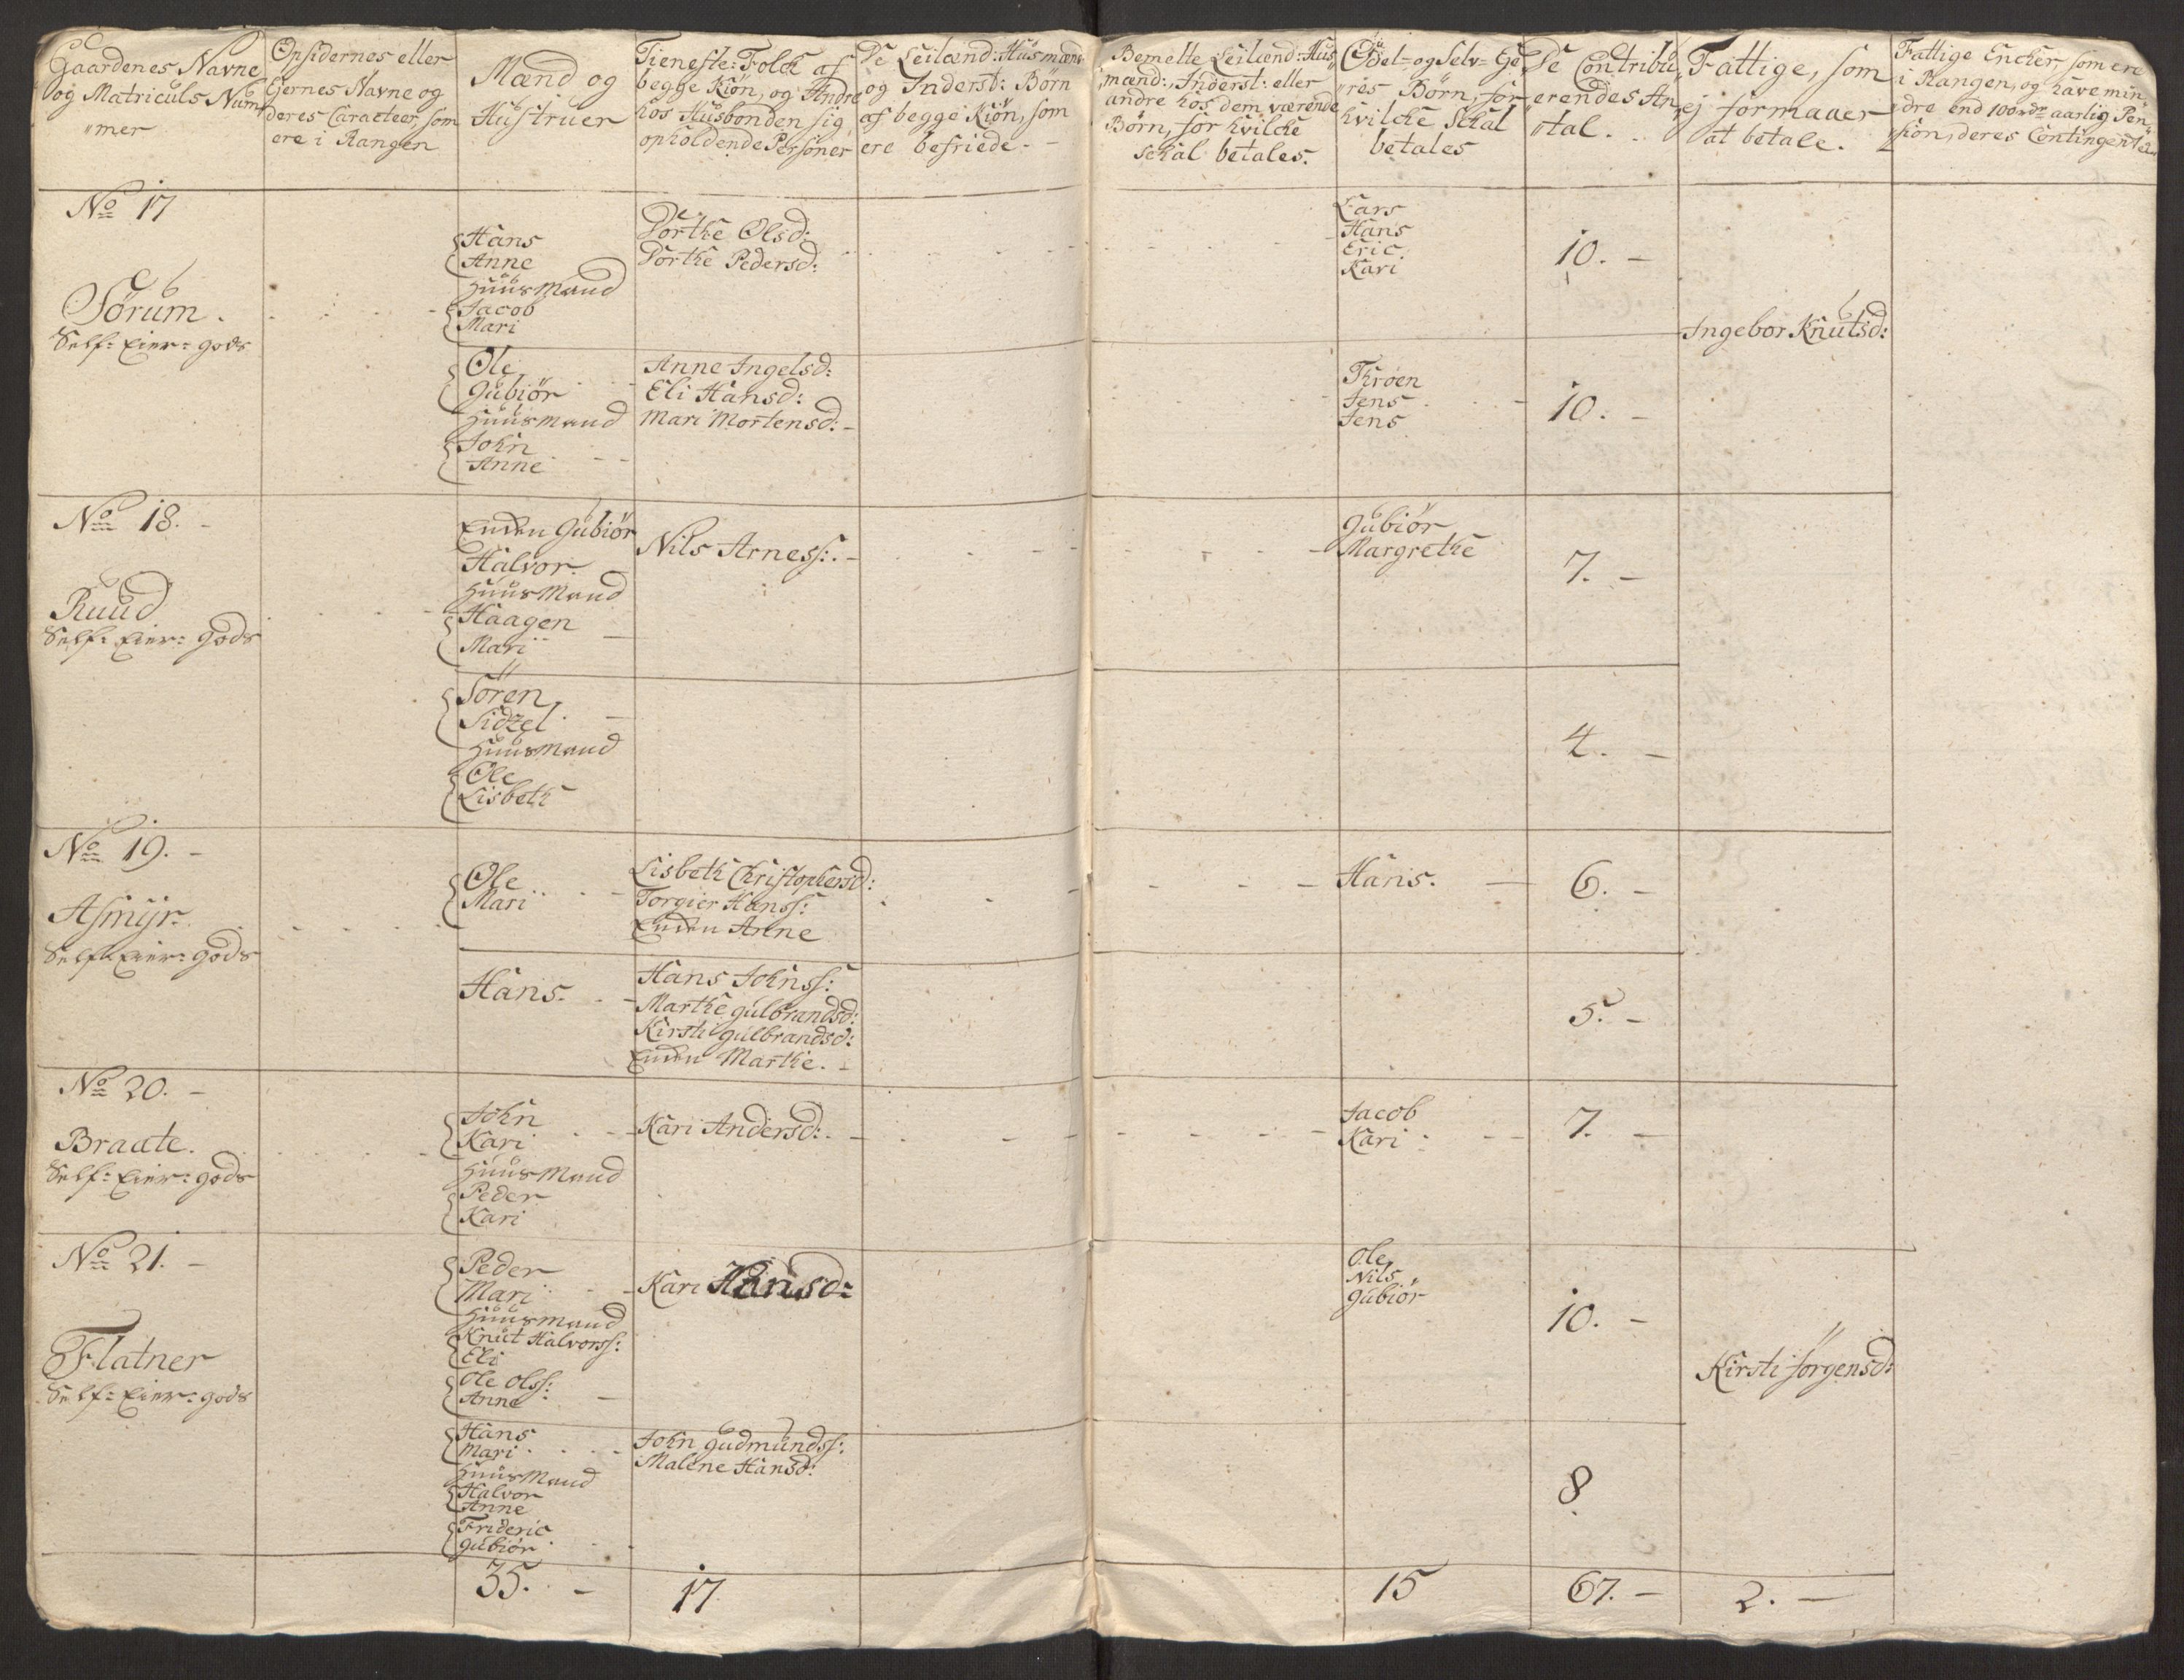 Gaardenes Navne
og Matriculs Num
"mer
Opsidernes eller
Eiernes Navne og
deres Caracteer, som
ere i Rangen
Mænd og
Hustruer
Tieneste-Folck af
begge Kiøn, og Andre
hos Husbonden sig
opholdende Personer
De Leilænd: Husmænd
og Inderst: Børn
af begge Kiøn, som
ere befriede. -
Bemelte Leilænd: Hus
"mænd:, Inderst: eller
andre hos dem værende
Børn, for hvilcke
skal betales.
Odel- og Selv-Ei
"res Børn, for
hvilcke skal
betales
De Contribu
"erendes An
"tal.
Fattige, som
ej formaaer
at betale.
Fattige Encker, som ere
i Rangen, og have min
"dre end 100 rdr aarlig Pen
"sion, deres Contingenter
No 17
Sørum.
Self-Eier-gods
Hans
Anne
Huusmand
Jacob
Mari
Dorthe Olsd:
Dorthe Pedersd:
Lars
Hans
Eric.
Kari
10. -
Ingebor Knutsd:
Ole
Gubiør
Huusmand
John
Anne
Anne Ingelsd:
Eli Hansd:
Mari Mortensd: -
Throen
Jens
Jens
10. -
No 18. -
Ruud
Self-Eier-gods
Encken Gubiør
Halvor
Huusmand
Haagen
Mari
Nils Arness: -
Gubiør
Margrethe
7. -
Søren
Sidzel
Huusmand
Ole
Lisbeth
4. -
No 19. -
Asmyr.
Self-Eier-gods
Ole
Mari
Lisbeth Christophersd:
Torgier Hanss:
Encken Anne
Hans.
6. -
Hans.
Hans Johnss:
Marthe Gulbrandsd:
Kirsti Gulbrandsd:
Encken Marthe. -
5. -
No 20. -
Braate.
Self-Eier-gods
John
Kari
Huusmand
Peder
Kari
Kari Andersd:
Jacob
Kari
7. -
No 21. -
Flatner
Self-Eier-gods
Peder
Mari
Huusmand
Knut Halvorss:
Eli
Ole Olss:
Anne
Kari Hansd:
Ole
Nils
Gubiør
10. -
Kirsti Jørgensd:
Hans
Mari
Huusmand
Halvor
Anne
Frideric
Gubiør
John Gudmundss:
Malene Hansd:
8
35. -
17
15
67. -
2. -